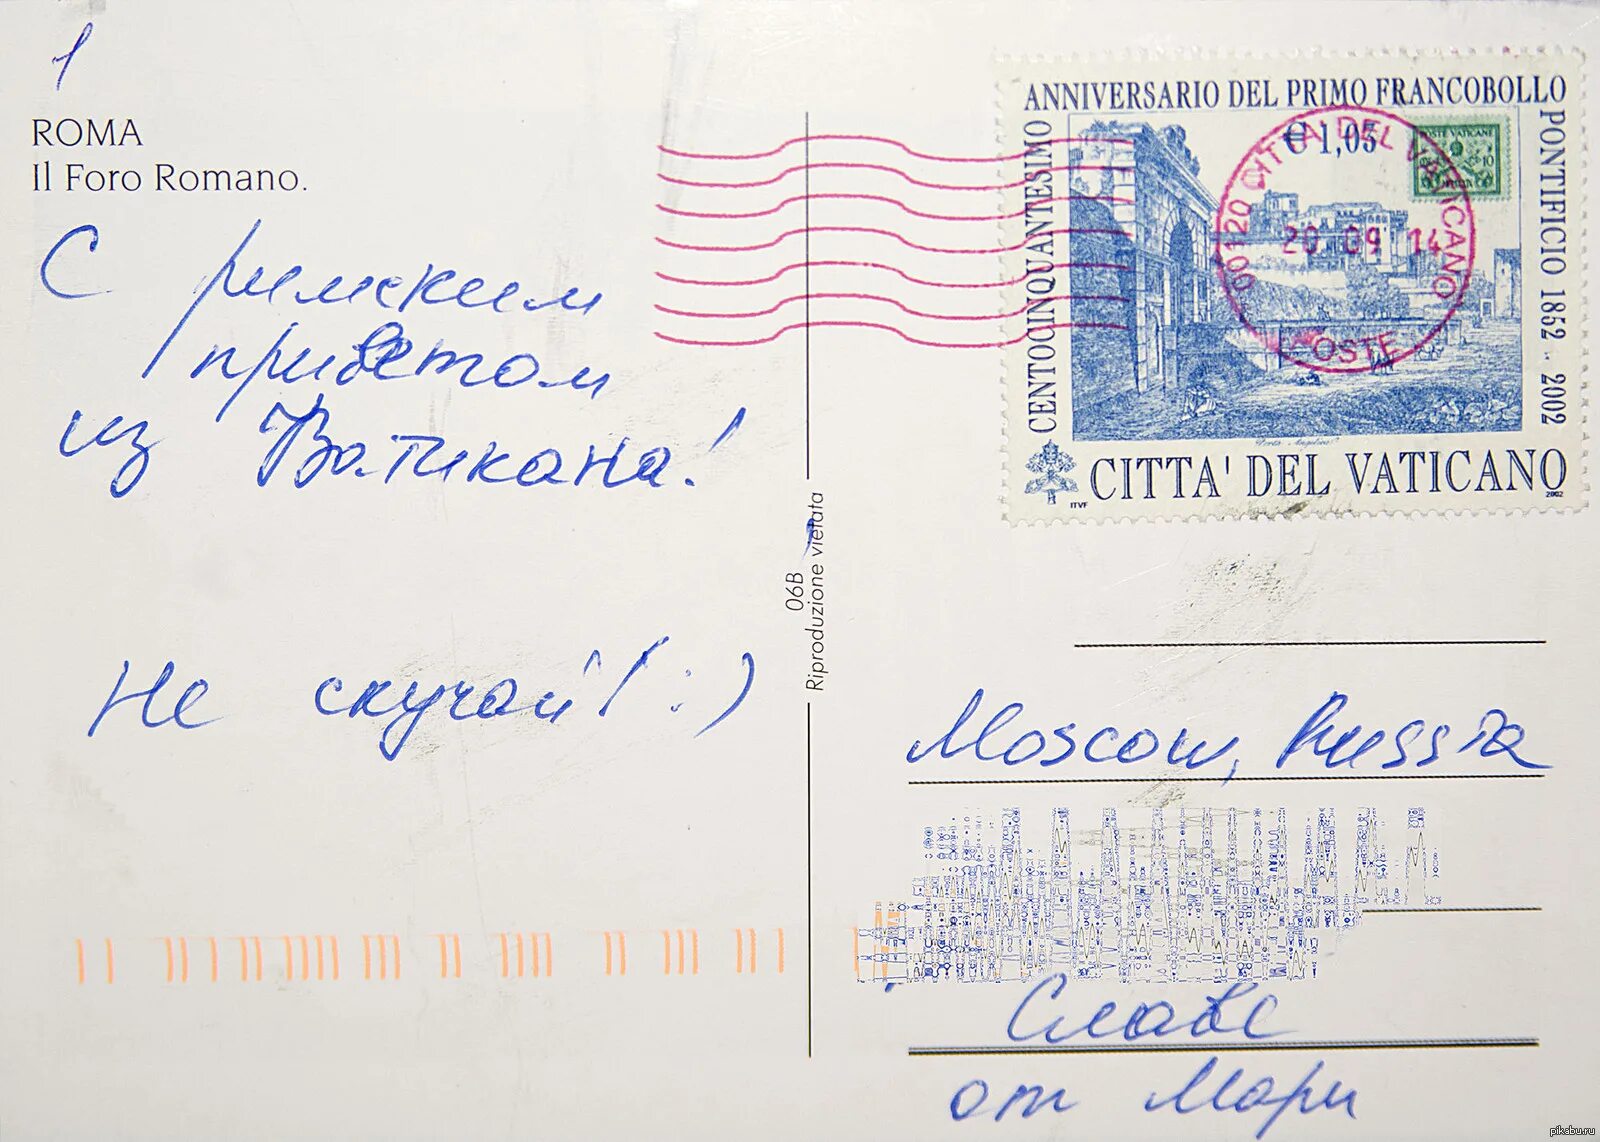 1
ROMA
Il Foro Romano.
С римским
приветом
из Ватикана!
Не скучай! :)
06B
Riproduzione vietata
ANNIVERSARIO DEL PRIMO FRANCOBOLLO
PONTIFICIO 1852 .. 2002
CENTOCINQUANTESIMO
€ 1,05
POSTE VATICANE
10
00120 CITTA' DEL VATICANO
20 09 14
POSTE
CITTA' DEL VATICANO
ITVF
2002
Moscow, Russia
Славе
от Мари
pikabu.ru